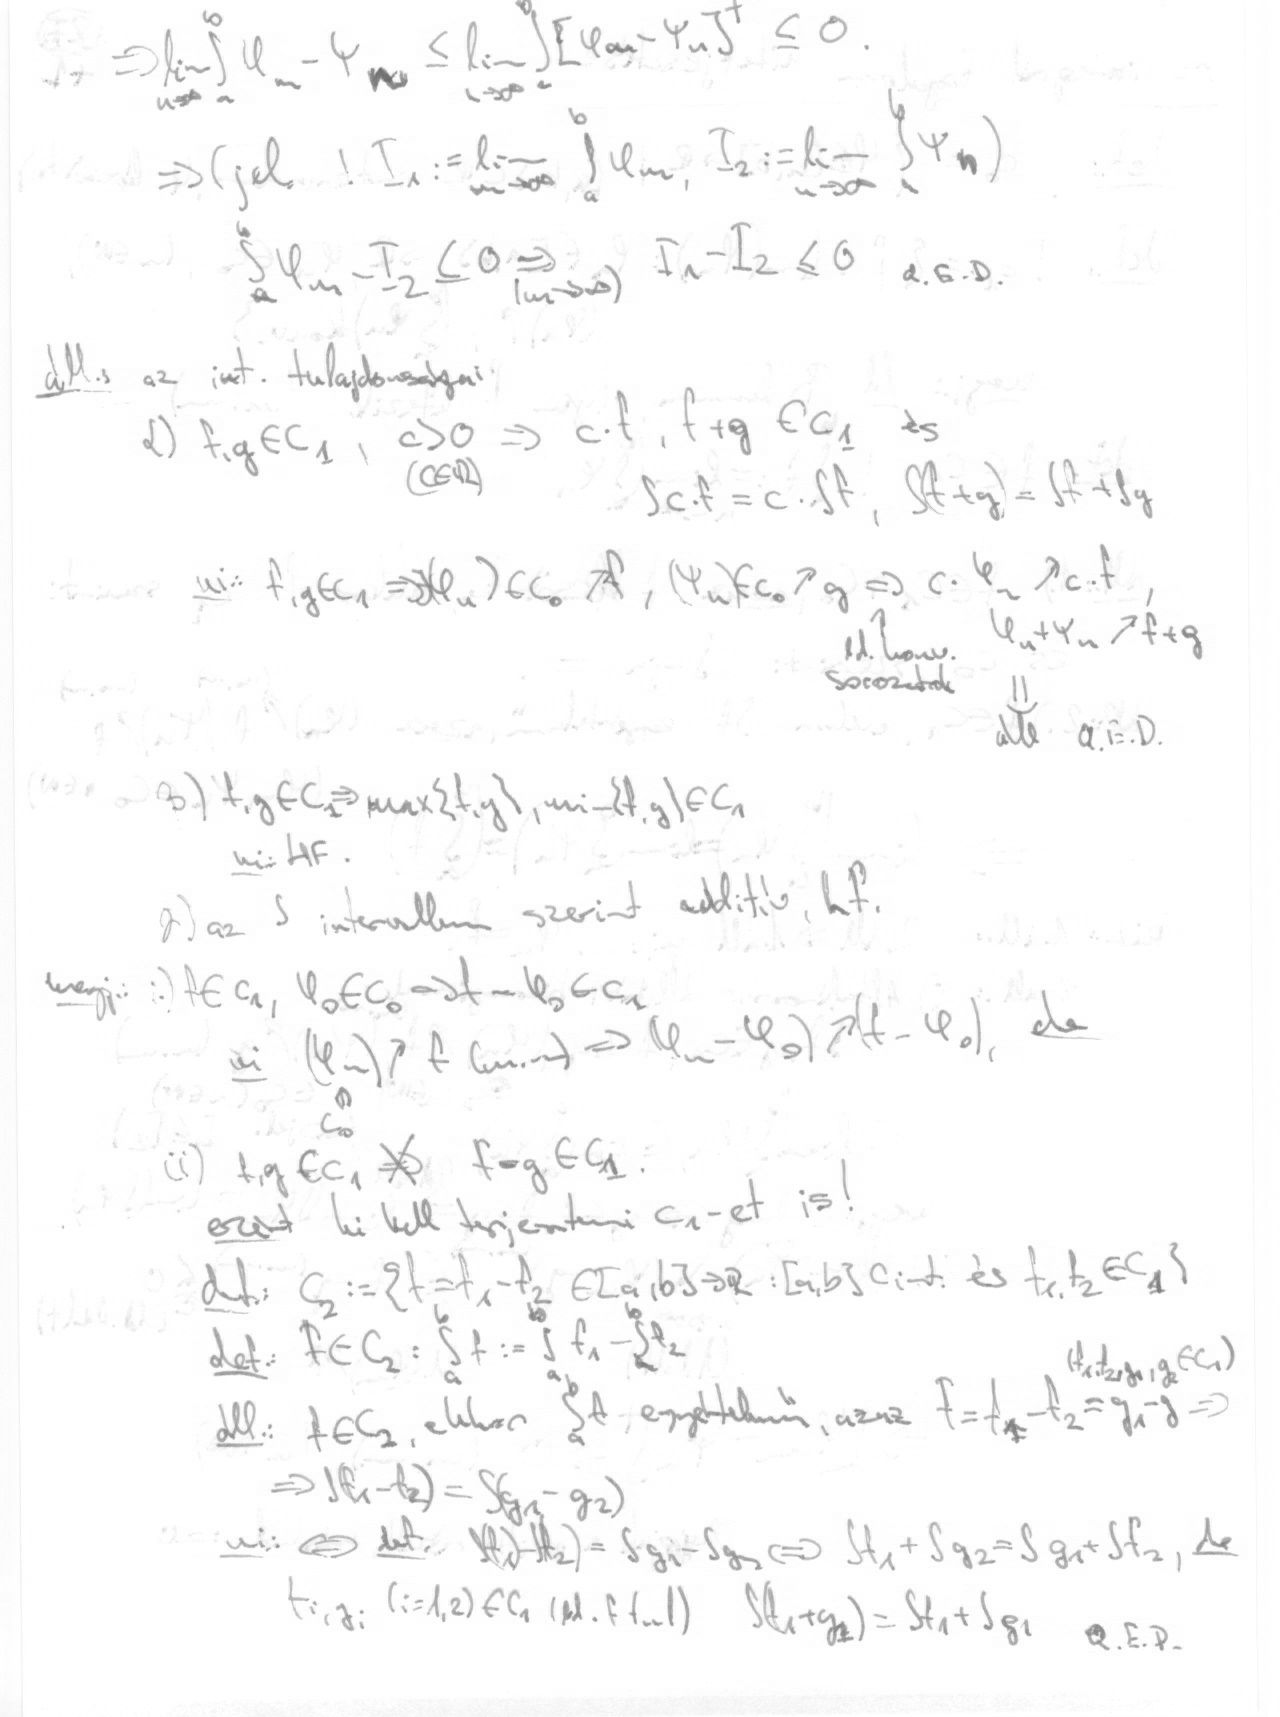 ⇒ lim_{n→∞} ∫_a^b φ_m − ψ_n ≤ lim_{n→∞} ∫_a^b [φ_m − ψ_n]^+ ≤ 0.
⇒ (jel. ! I_1 := lim_{m→∞} ∫_a^b φ_m, I_2 := lim_{n→∞} ∫_a^b ψ_n)
∫_a^b φ_m − I_2 ≤ 0 ⇒ (m→∞) I_1 − I_2 ≤ 0 Q.E.D.
áll.: az int. tulajdonságai
α) f,g ∈ C_1, c>0 (c∈ℝ) ⇒ c·f, f+g ∈ C_1 és
∫c·f = c·∫f, ∫(f+g) = ∫f + ∫g
biz: f,g∈C_1 ⇒ ∃(φ_n)∈C_0 ↗ f, (ψ_n)∈C_0 ↗ g ⇒ c·φ_n ↗ c·f,
φ_n+ψ_n ↗ f+g
ld. konv.
sorozatok
⇓
áll. Q.E.D.
β) f,g∈C_1 ⇒ max{f,g}, min{f,g}∈C_1
biz: HF.
γ) az ∫ intervallum szerint additív, hf.
megj.: i) f∈C_1, φ_0∈C_0 ⇒ f−φ_0∈C_1
biz (φ_n) ↗ f (m.m) ⇒ (φ_n−φ_0) ↗ (f−φ_0), de
C_0
ii) f,g∈C_1 ⇏ f−g∈C_1.
ezért ki kell terjeszteni C_1-et is!
def.: C_2 := {f=f_1−f_2 ∈[a,b]→ℝ : [a,b] C int. és f_1,f_2∈C_1}
def.: f∈C_2: ∫_a^b f := ∫_a^b f_1 − ∫_a^b f_2
(f_1,f_2,g_1,g_2∈C_1)
áll.: f∈C_2, ekkor ∫_a^b f egyértelmű, azaz f=f_1−f_2=g_1−g ⇒
⇒ ∫(f_1−f_2) = ∫(g_1−g_2)
biz: ⇔ def. ∫f_1−∫f_2) = ∫g_1−∫g_2 ⇔ ∫f_1+∫g_2=∫g_1+∫f_2, de
f_i,g_i (i=1,2)∈C_1 ∫(f_1+g_2) = ∫f_1+∫g_1 Q.E.D.